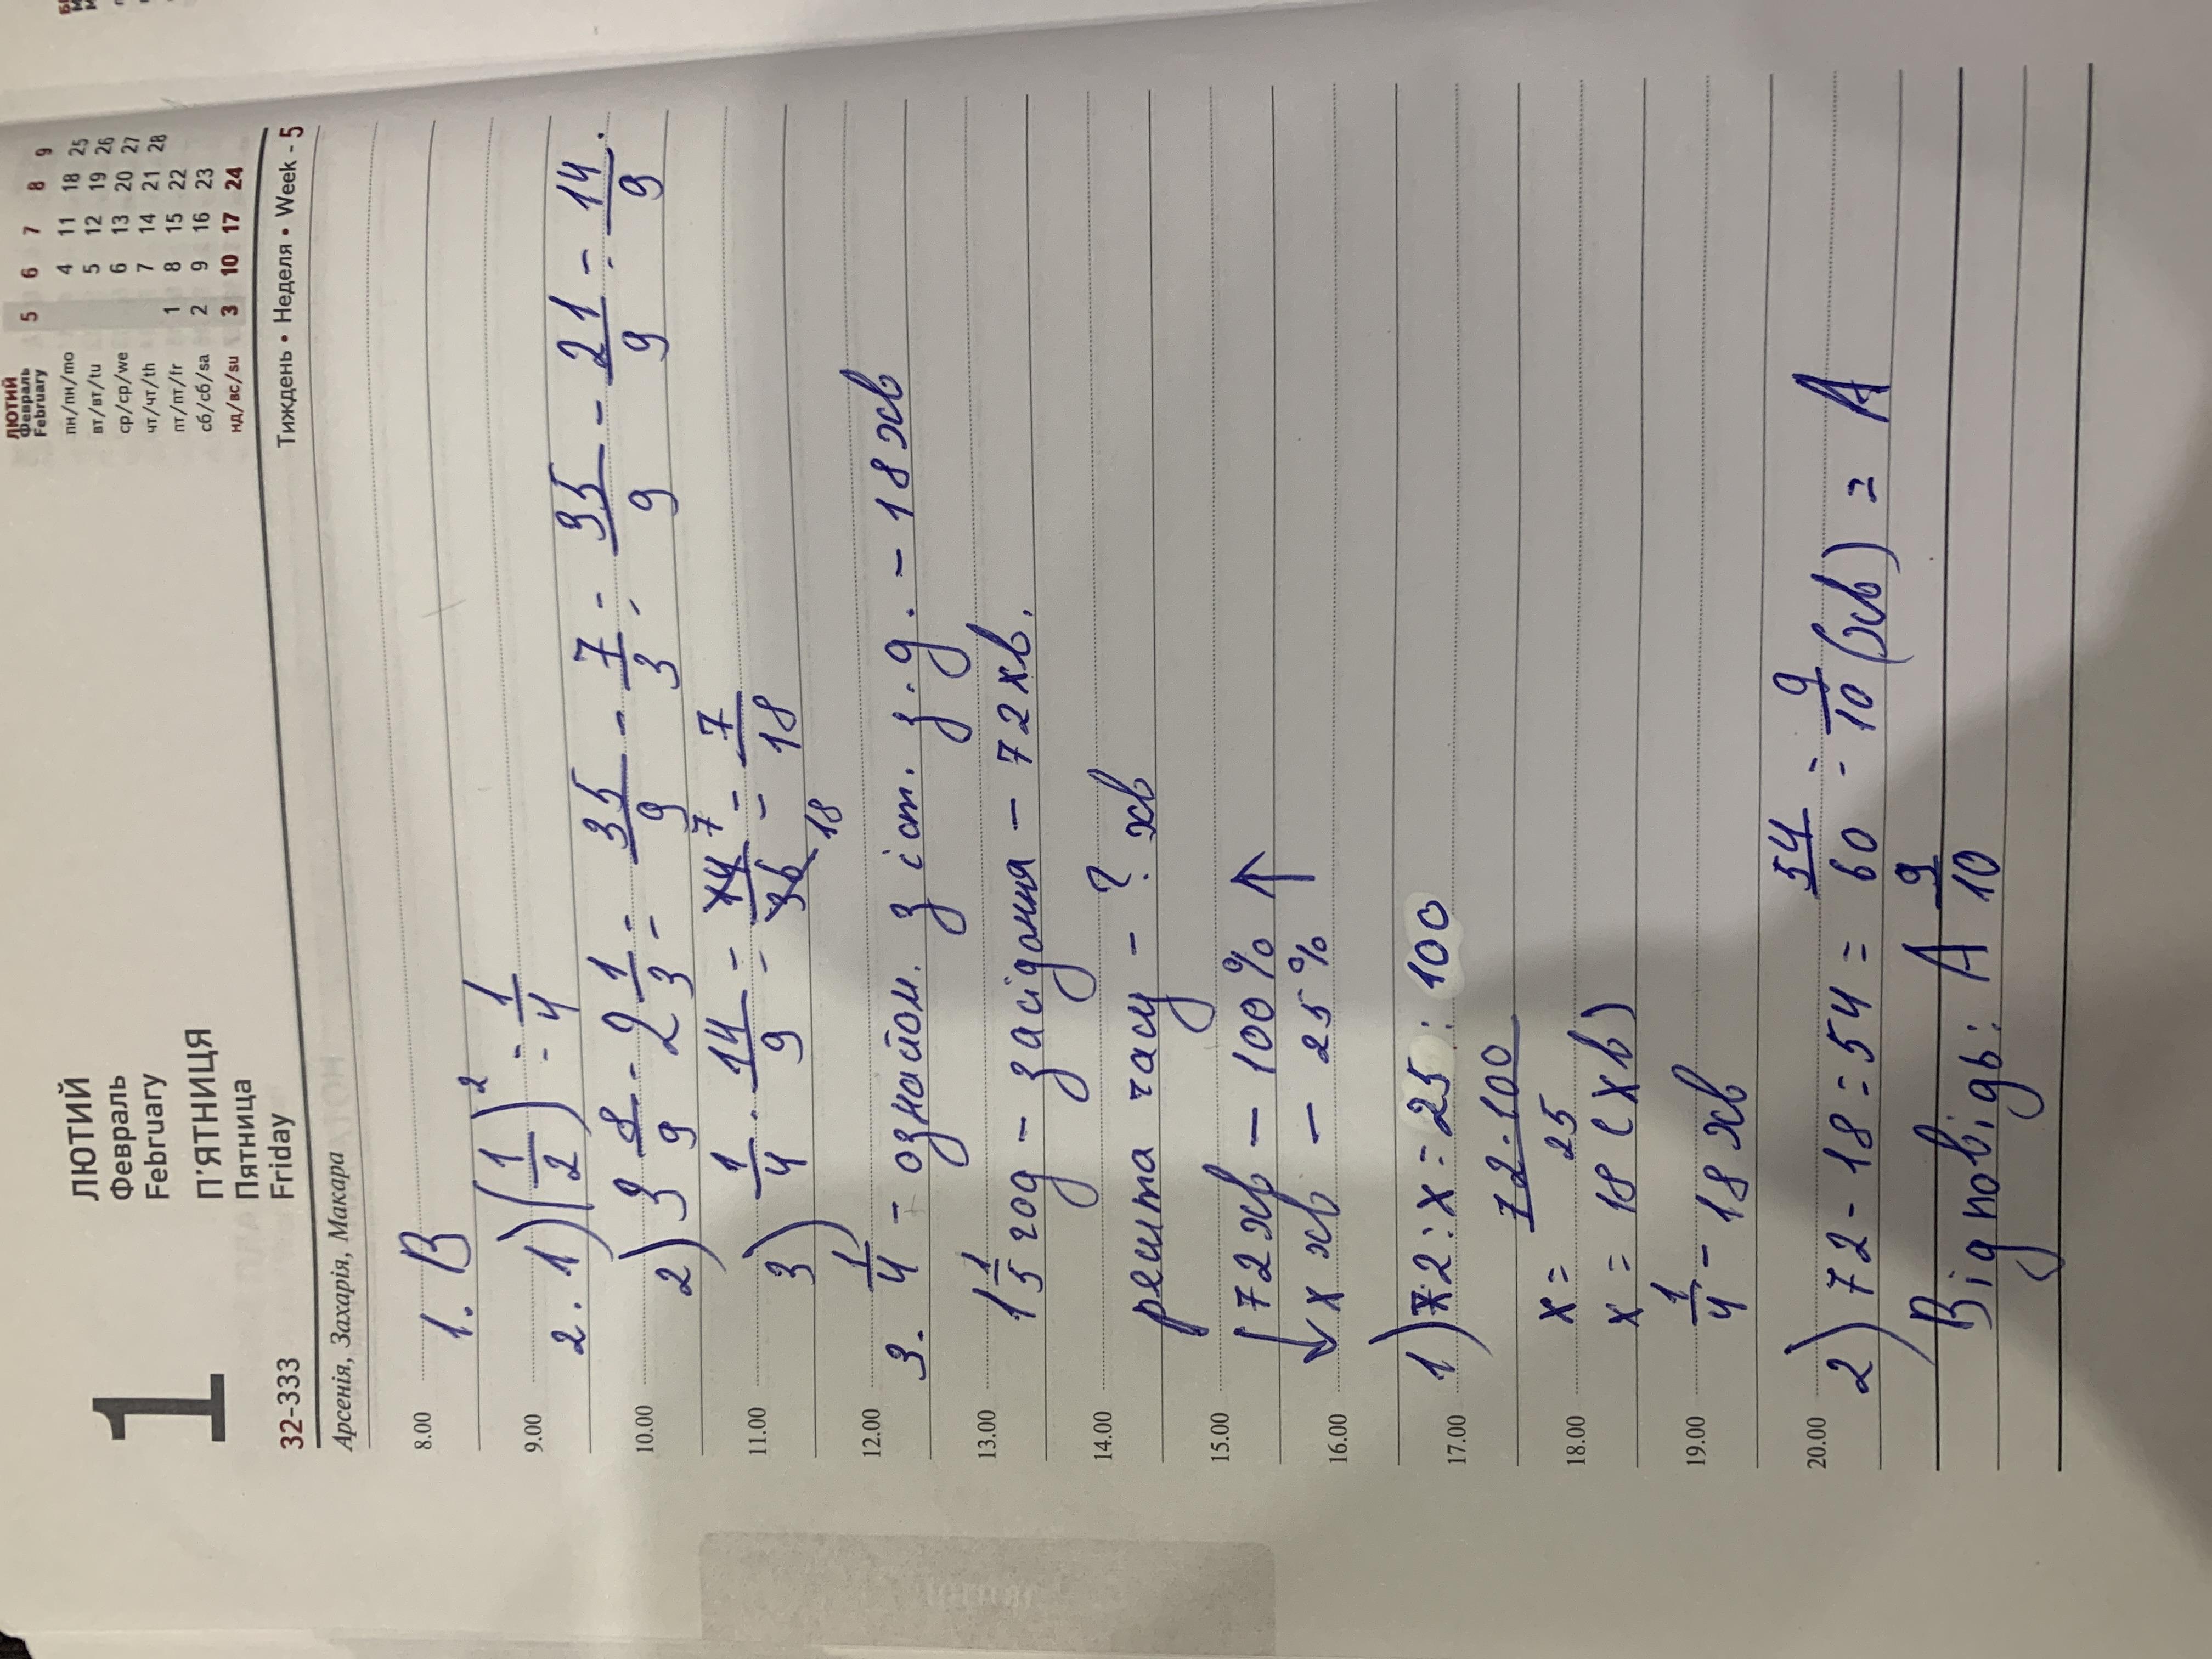 1
ЛЮТИЙ
Февраль
February
П'ЯТНИЦЯ
Пятница
Friday
32-333
ЛЮТИЙ
Февраль
February
5 6 7 8 9
пн/пн/mo 4 11 18 25
вт/вт/tu 5 12 19 26
ср/ср/we 6 13 20 27
чт/чт/th 7 14 21 28
пт/пт/fr 1 8 15 22
сб/сб/sa 2 9 16 23
нд/вс/su 3 10 17 24
Тиждень • Неделя • Week - 5
Арсенія, Захарія, Макара
8.00
1. В
9.00
2. 1) (1/2)² = 1/4
10.00
2) 3 8/9 - 2 1/3 = 35/9 - 7/3 = 35/9 - 21/9 = 14/9.
11.00
3) 1/4 · 14/9 = 14/36 = 7/18
7
18
12.00
3. 1/4 - ознайом. з іст. з.д. - 18 хв
13.00
1 1/5 год - засідання - 72 хв.
14.00
решта часу - ? хв
15.00
↓ 72 хв - 100% ↑
16.00
x хв - 25%
17.00
1) 72 : x = 25 : 100
x = 72·100/25
18.00
x = 18 (хв)
19.00
1/4 - 18 хв
20.00
2) 72 - 18 = 54 = 54/60 = 9/10 (хв) = А
Відповідь: А 9/10